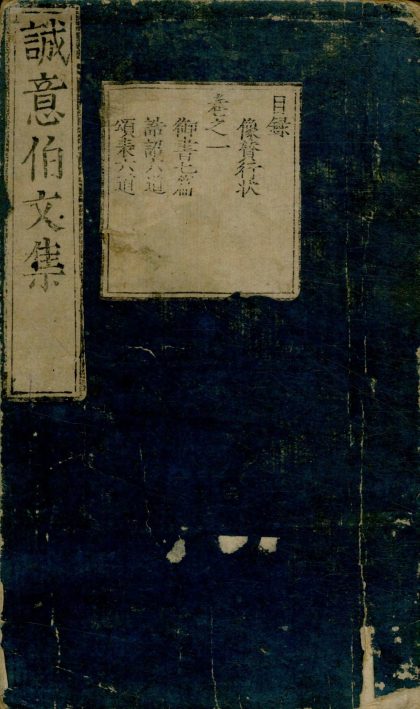 誠意伯文集
目錄
像贊行状
卷之一
御書七篇
誥詔六道
頌表六道